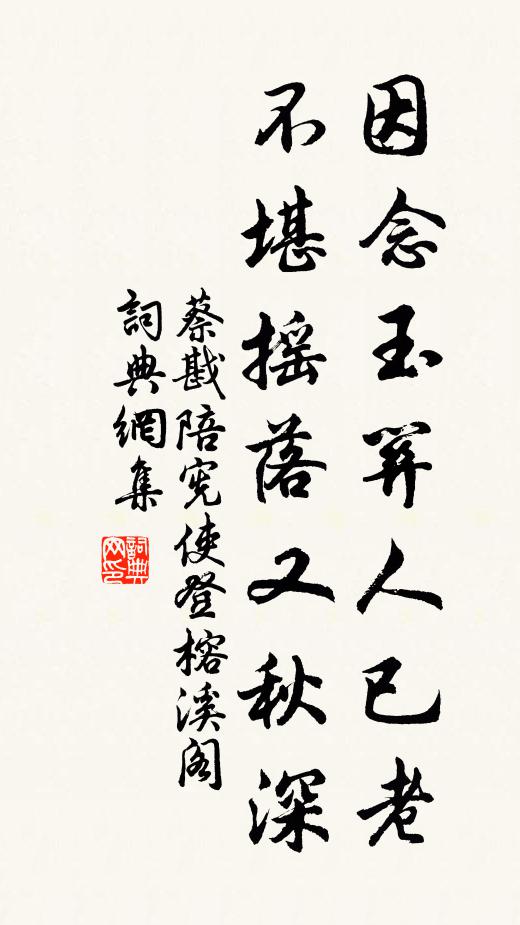 因念玉关人已老
不堪摇落又秋深
蔡戡陪宪使登榕溪阁
詞典網集
詞典网印